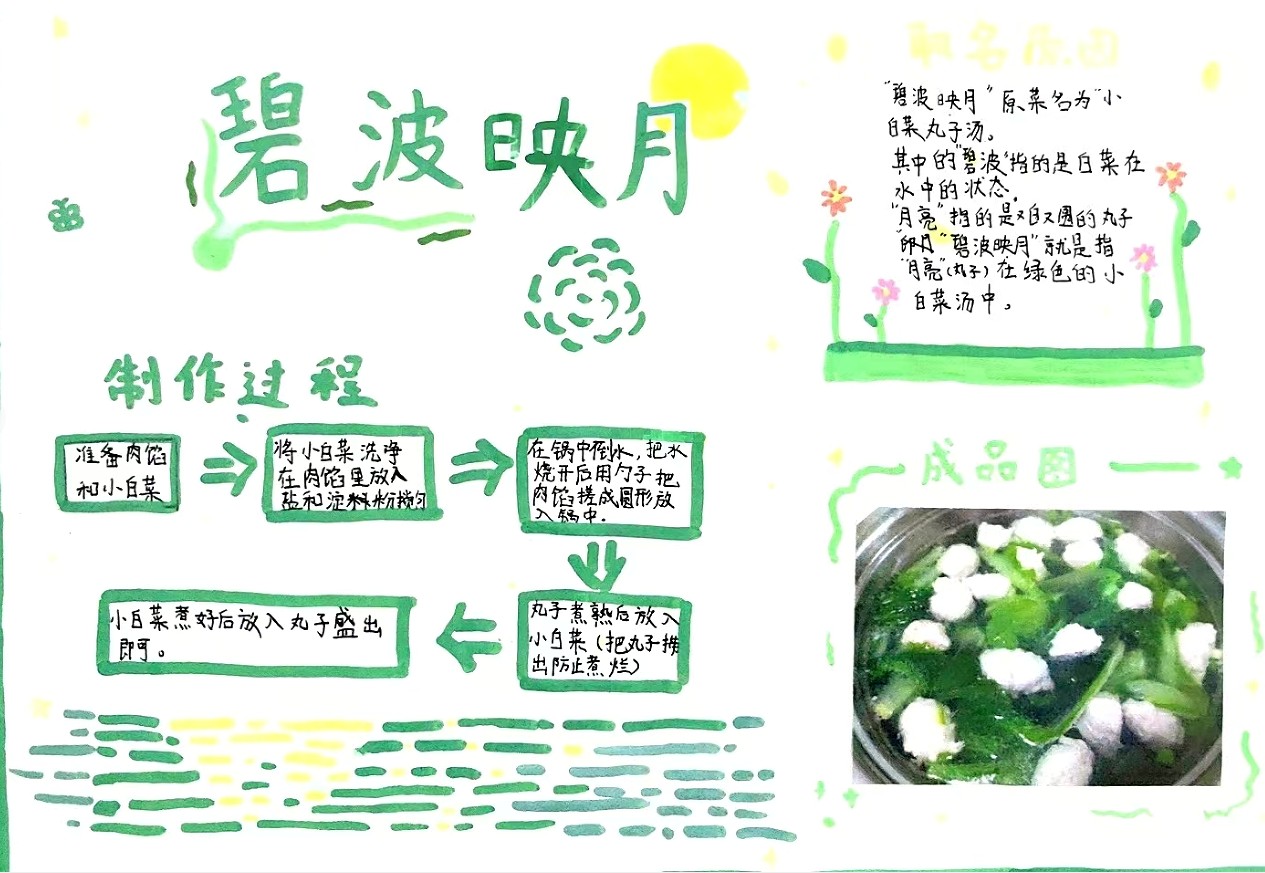 碧波映月
制作过程
准备肉馅
和小白菜
将小白菜洗净
在肉馅里放入
盐和淀粉搅匀
在锅中倒水,把水
烧开后用勺子把
肉馅搓成圆形放
入锅中.
丸子煮熟后放入
小白菜(把丸子捞
出防止煮烂)
小白菜煮好后放入丸子盛出
即可。
取名原因
"碧波映月"原菜名为"小
白菜丸子汤。
其中的"碧波"指的是白菜在
水中的状态.
"月亮"指的是又白又圆的丸子
"碧波映月"就是指
"月亮"(丸子)在绿色的小
白菜汤中。
成品图